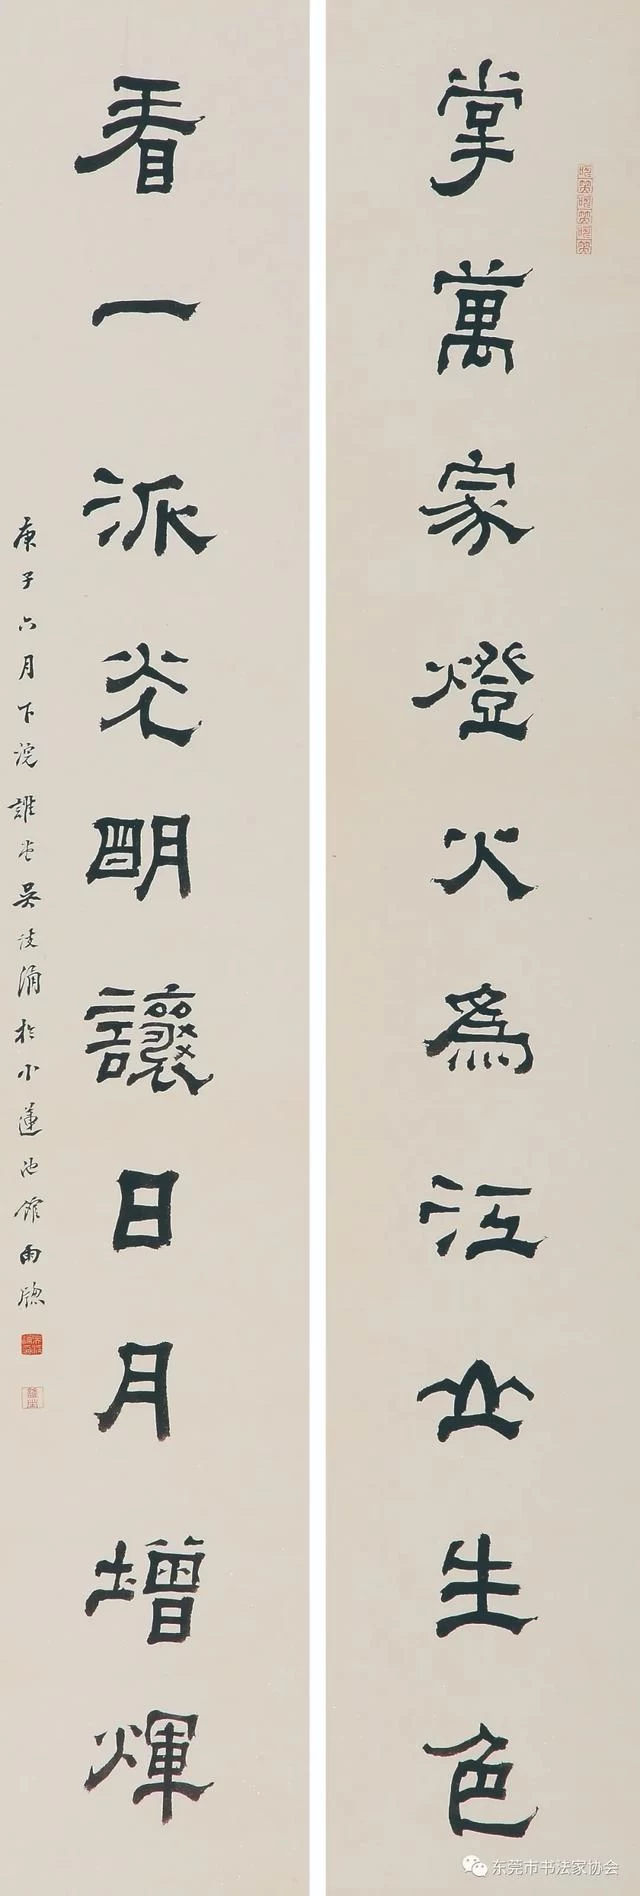 掌萬家燈火為江山生色
看一派光明讓日月增輝
庚子六月下浣誰堂吳凌涓於小蓮池館南牕
东莞市书法家协会